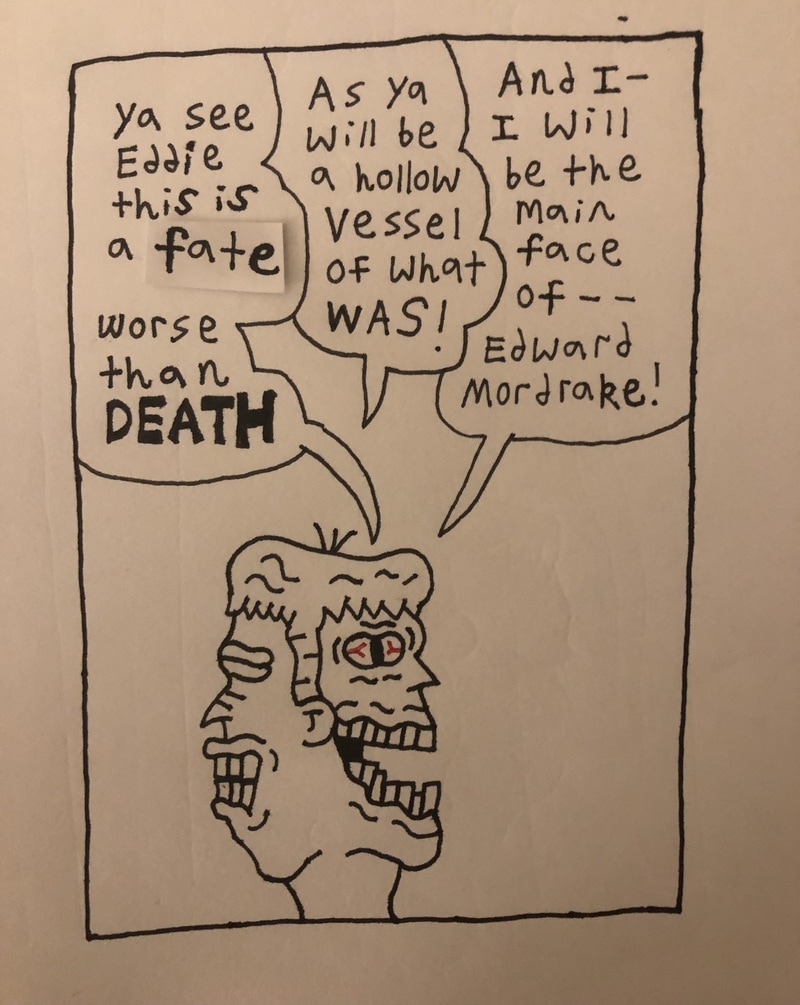 ya see
Eddie
this is
a fate
worse
than
DEATH
As ya
will be
a hollow
vessel
of what
WAS!
And I-
I will
be the
main
face
of--
Edward
Mordrake!